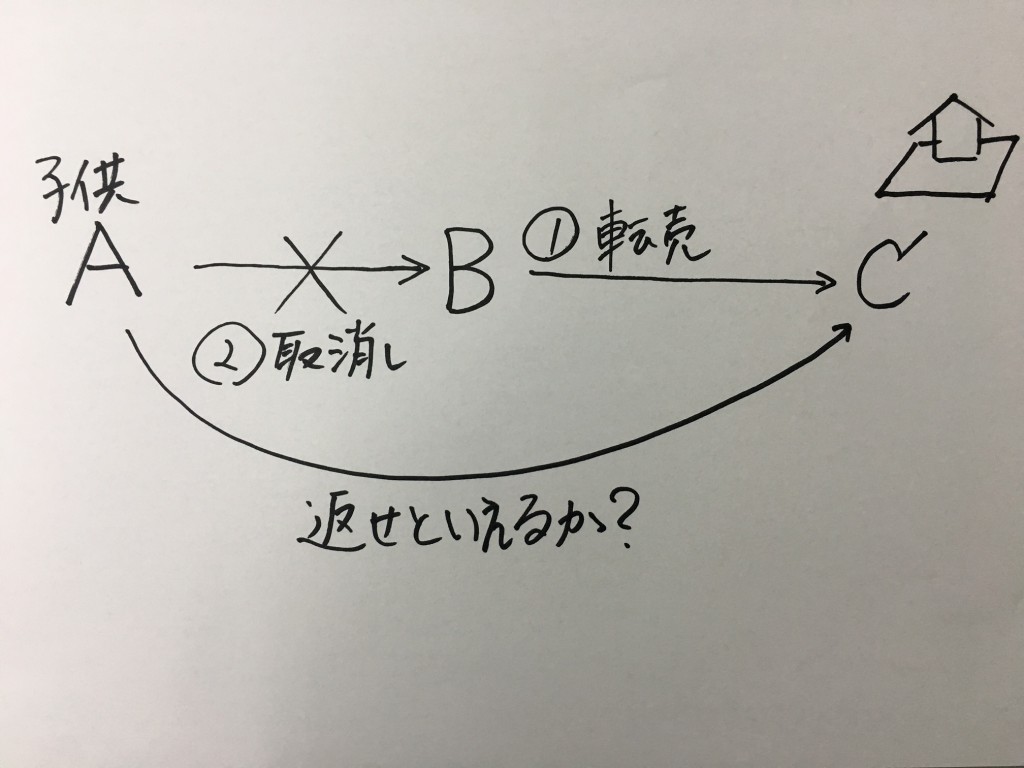 子供
A B ①転売 C
②取消し
返せといえるか?